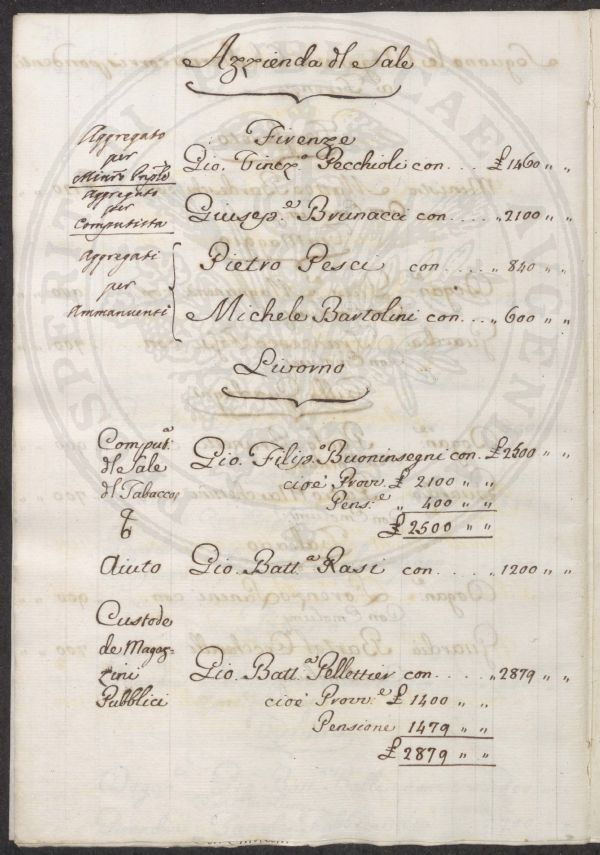 Azzienda dl Sale
Firenze
Aggregato
per
Gio. Vinc.o Pecchioli con.... £ 1460 " "
Aggregato
per
Computista
Giusep.e Brunacci con.... " 2100 " "
Aggregati
per
Ammanuenti
Pietro Pesci con..... " 840 " "
Michele Bartolini con... " 600 " "
Livorno
Comput.a
dl Sale
dl Tabacco
Gio. Filip.o Buoninsegni con. £ 2500 " "
cioè Provv.e £ 2100 " "
Pens.e " 400 " "
£ 2500 " "
Aiuto Gio. Batt.a Rasi con..... " 1200 " "
Custode
de Magaz-
zini
Pubblici
Gio. Batt.a Pellettier con.... " 2879 " "
cioè Provv.e £ 1400 " "
Pensione 1479 " "
£ 2879 " "